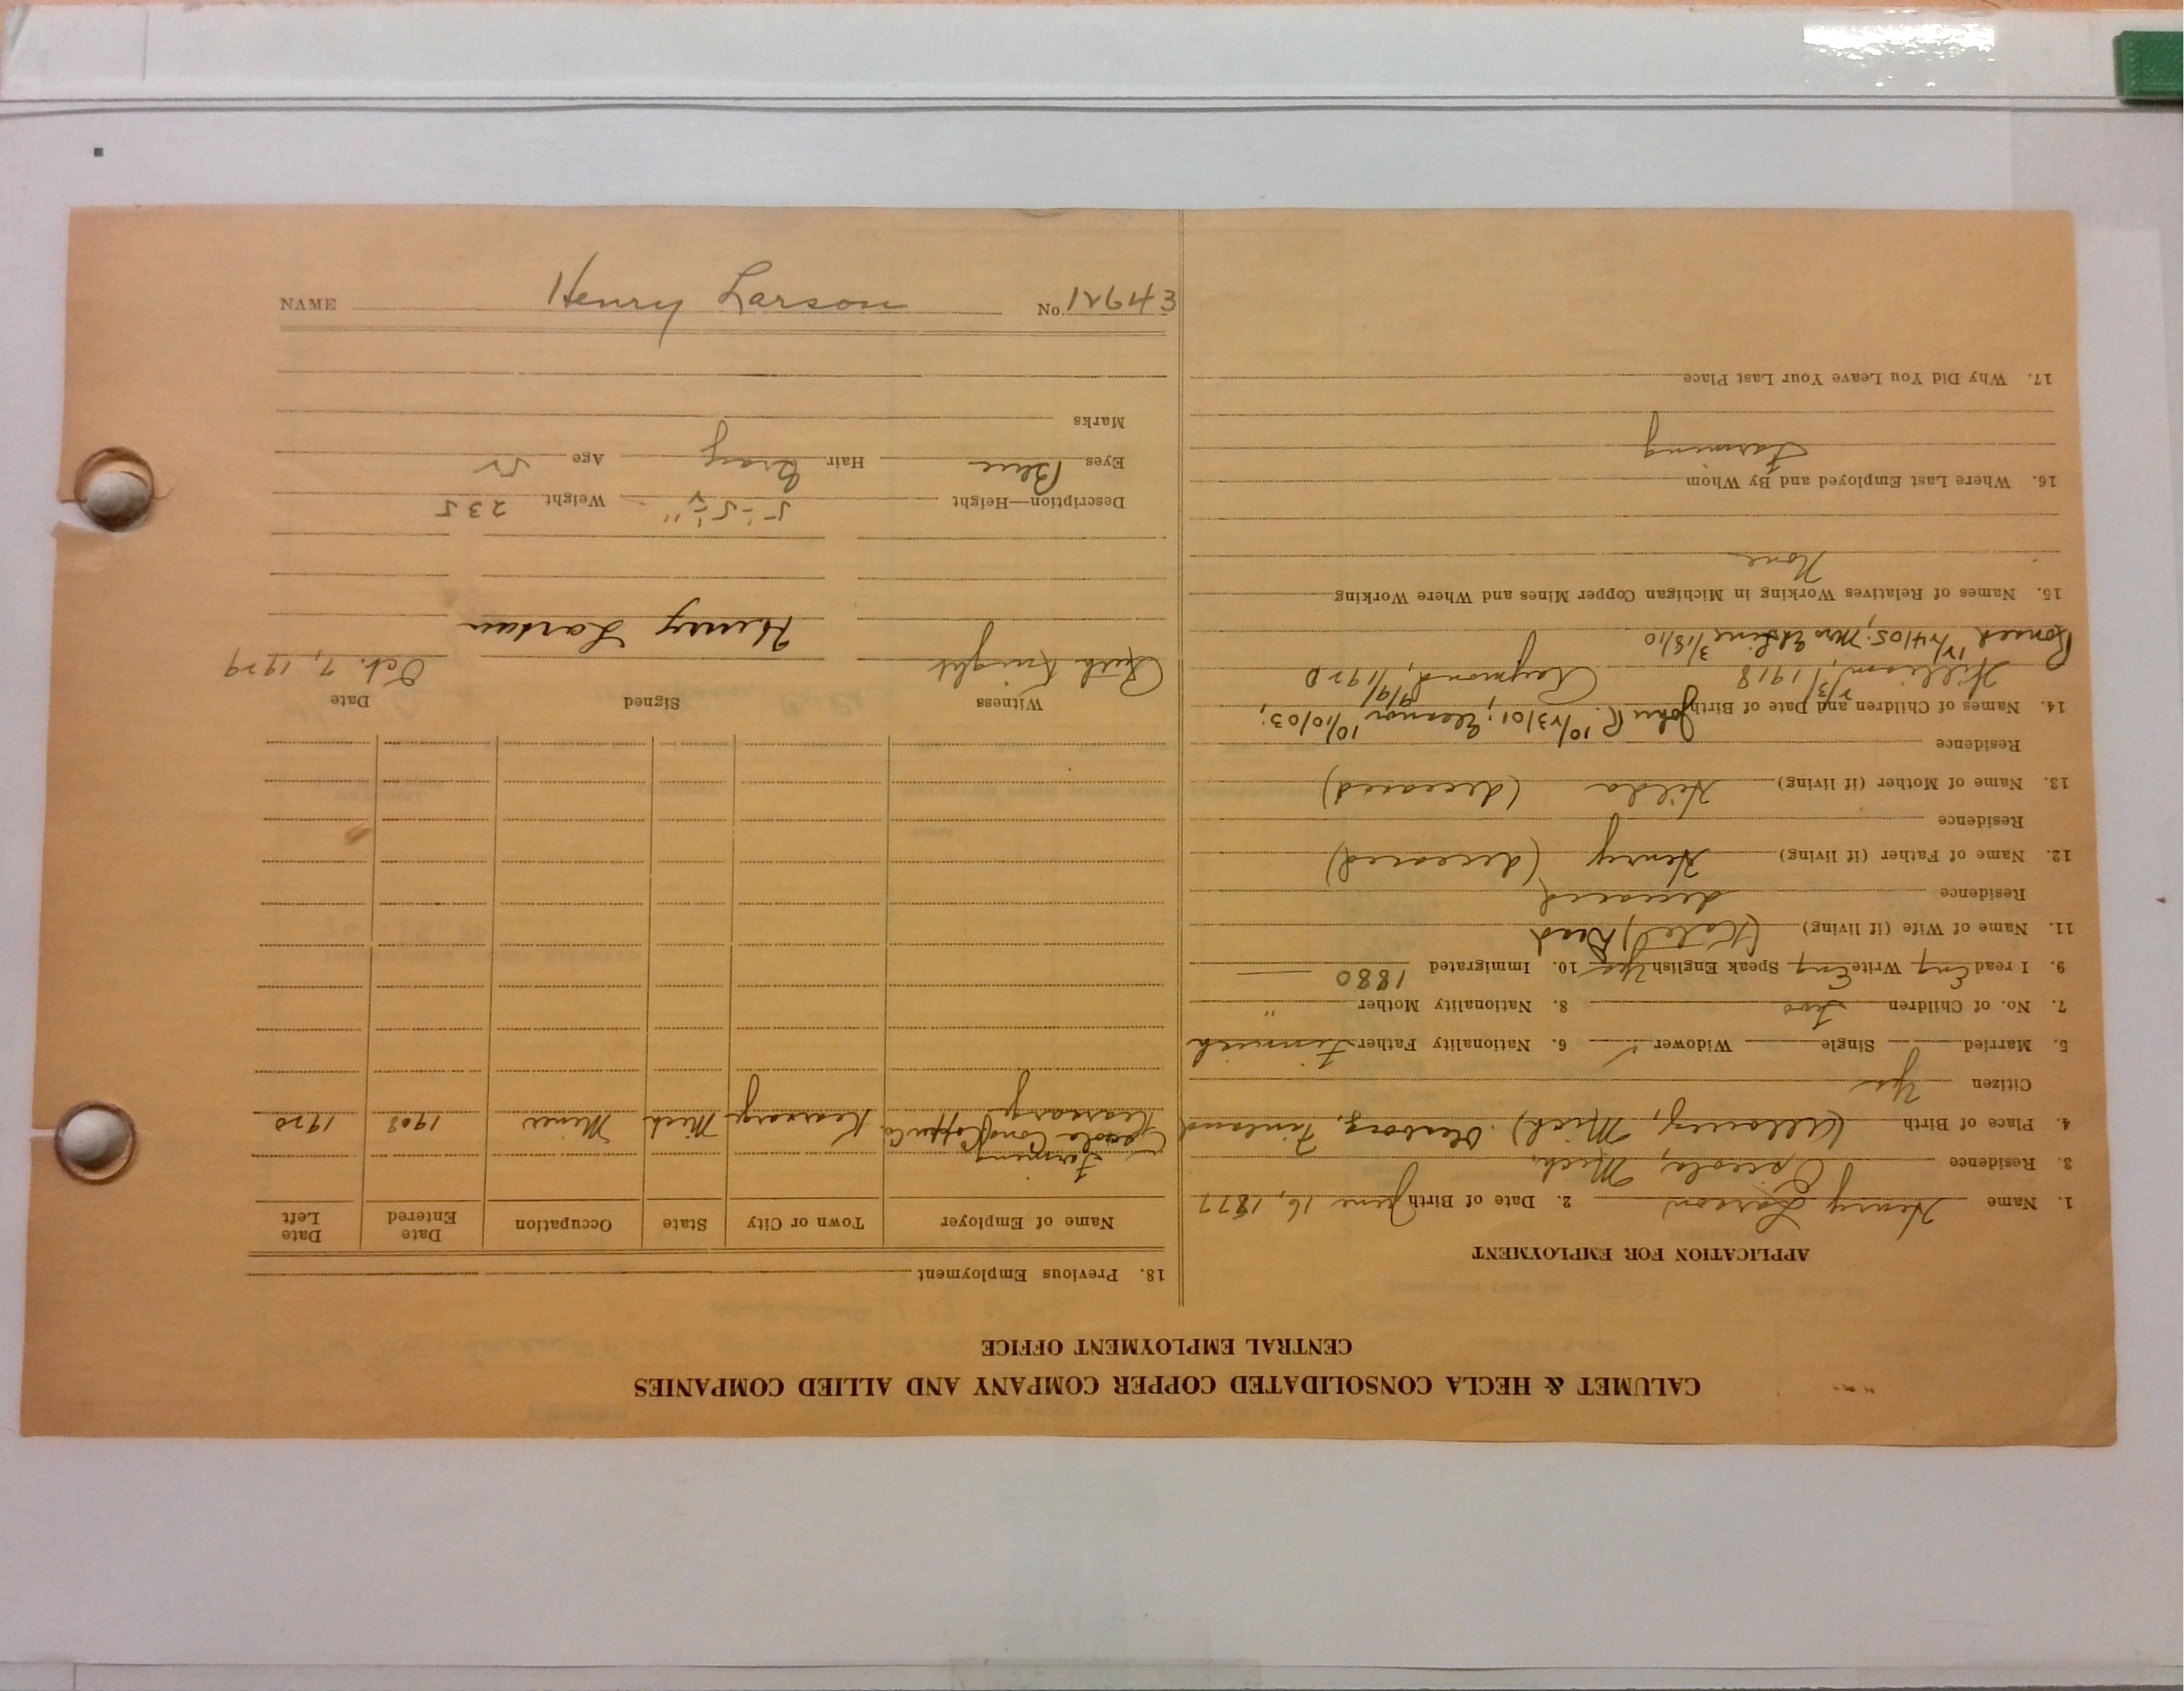 CALUMET & HECLA CONSOLIDATED COPPER COMPANY AND ALLIED COMPANIES
CENTRAL EMPLOYMENT OFFICE
APPLICATION FOR EMPLOYMENT
1. Name Henry Larson 2. Date of Birth June 16, 1877
3. Residence Opeechee, Mich.
4. Place of Birth (Allouez, Mich) Uleaborg, Finland
Citizen Yes
5. Married Single Widower ✓ 6. Nationality Father Finnish
7. No. of Children Two 8. Nationality Mother "
9. I read Eng Write Eng Speak English Yes 10. Immigrated 1880
11. Name of Wife (if living) (Kate) Dead
Residence deceased
12. Name of Father (if living) Henry (deceased)
Residence
13. Name of Mother (if living) Hilda (deceased)
Residence
14. Names of Children and Date of Birth John R. 10/23/01; Eleanor 10/10/03;
William, 2/3/1918 Raymond, 9/9/1920
12/24/05; Mrs 3/18/10
15. Names of Relatives Working in Michigan Copper Mines and Where Working
None
16. Where Last Employed and By Whom
Farming
17. Why Did You Leave Your Last Place
18. Previous Employment
Name of Employer Town or City State Occupation Date Entered Date Left
Farming
Osceola Cons Copper Co. Kearsarge Mich Miner 1908 1920
Kearsarge
Witness Signed Date
Ruth Knight Henry Larson Oct. 7, 1929
Description—Height 5'-5½" Weight 235
Eyes Blue Hair Gray Age 52
Marks
NAME Henry Larson No. 12643